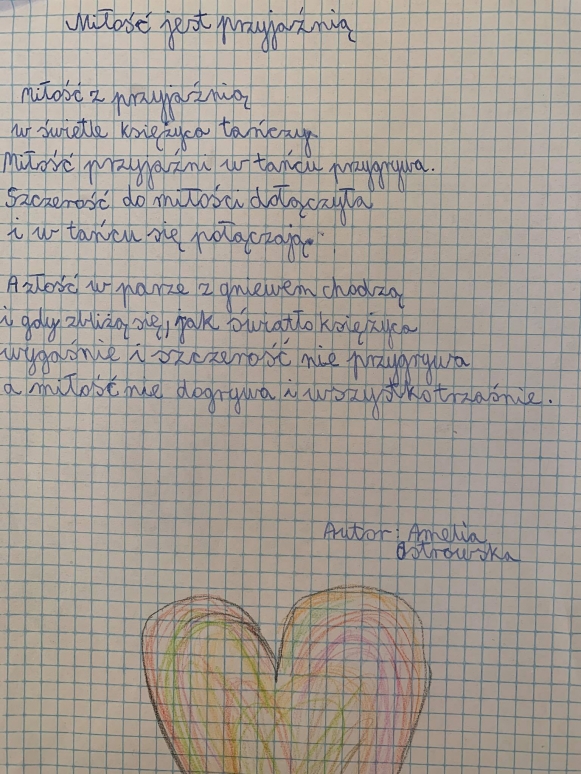 Miłość jest przyjaźnią
Miłość z przyjaźnią
w świetle księżyca tańczy
Miłość przyjaźni w tańcu przygrywa.
Szczerość do miłości dołączyła
i w tańcu się połączają.
A złość w parze z gniewem chodzą
i gdy zbliżą się, jak światło księżyca
wygaśnie i szczerość nie przygrywa
a miłość nie dogrywa i wszystko trzaśnie.
Autor: Amelia
Ostrowska